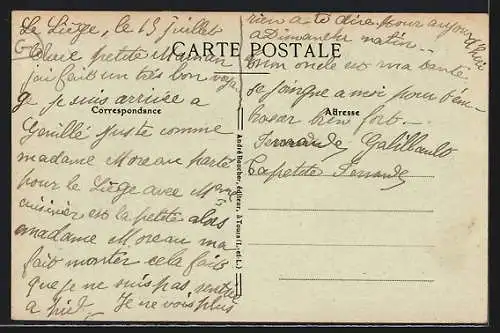 Le Liège, le 15 Juillet
Chère petite Maman
CARTE POSTALE
j'ai fait un très bon voya
ge je suis arrivée a
Correspondance
Genillé juste comme
madame Moreau parté
pour le Liège avec Mme
cuisinier et la petite alors
madame Moreau ma
fait monter cela fait
que je ne suis pas rentré
a pied. Je ne vois plus
rien a te dire pour aujour
d'hui
a Dimanche matin..
mon oncle et ma tante
se joingne a moi pour t'em
Adresse
brasser bien fort..
Fernande Galillault
Ta petite Fernande
André Boucher, éditeur, à Tours (I.-et-L.)